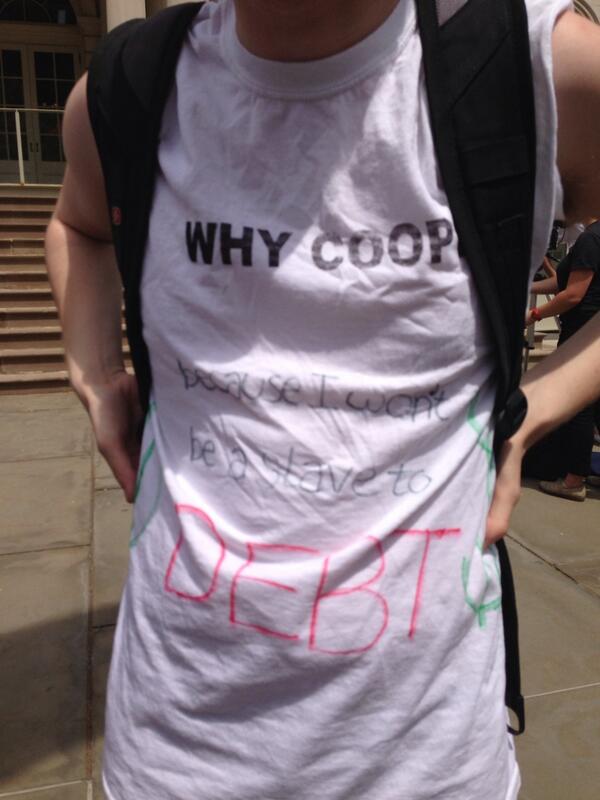 WHY COOP
because I won't
be a slave to
DEBT